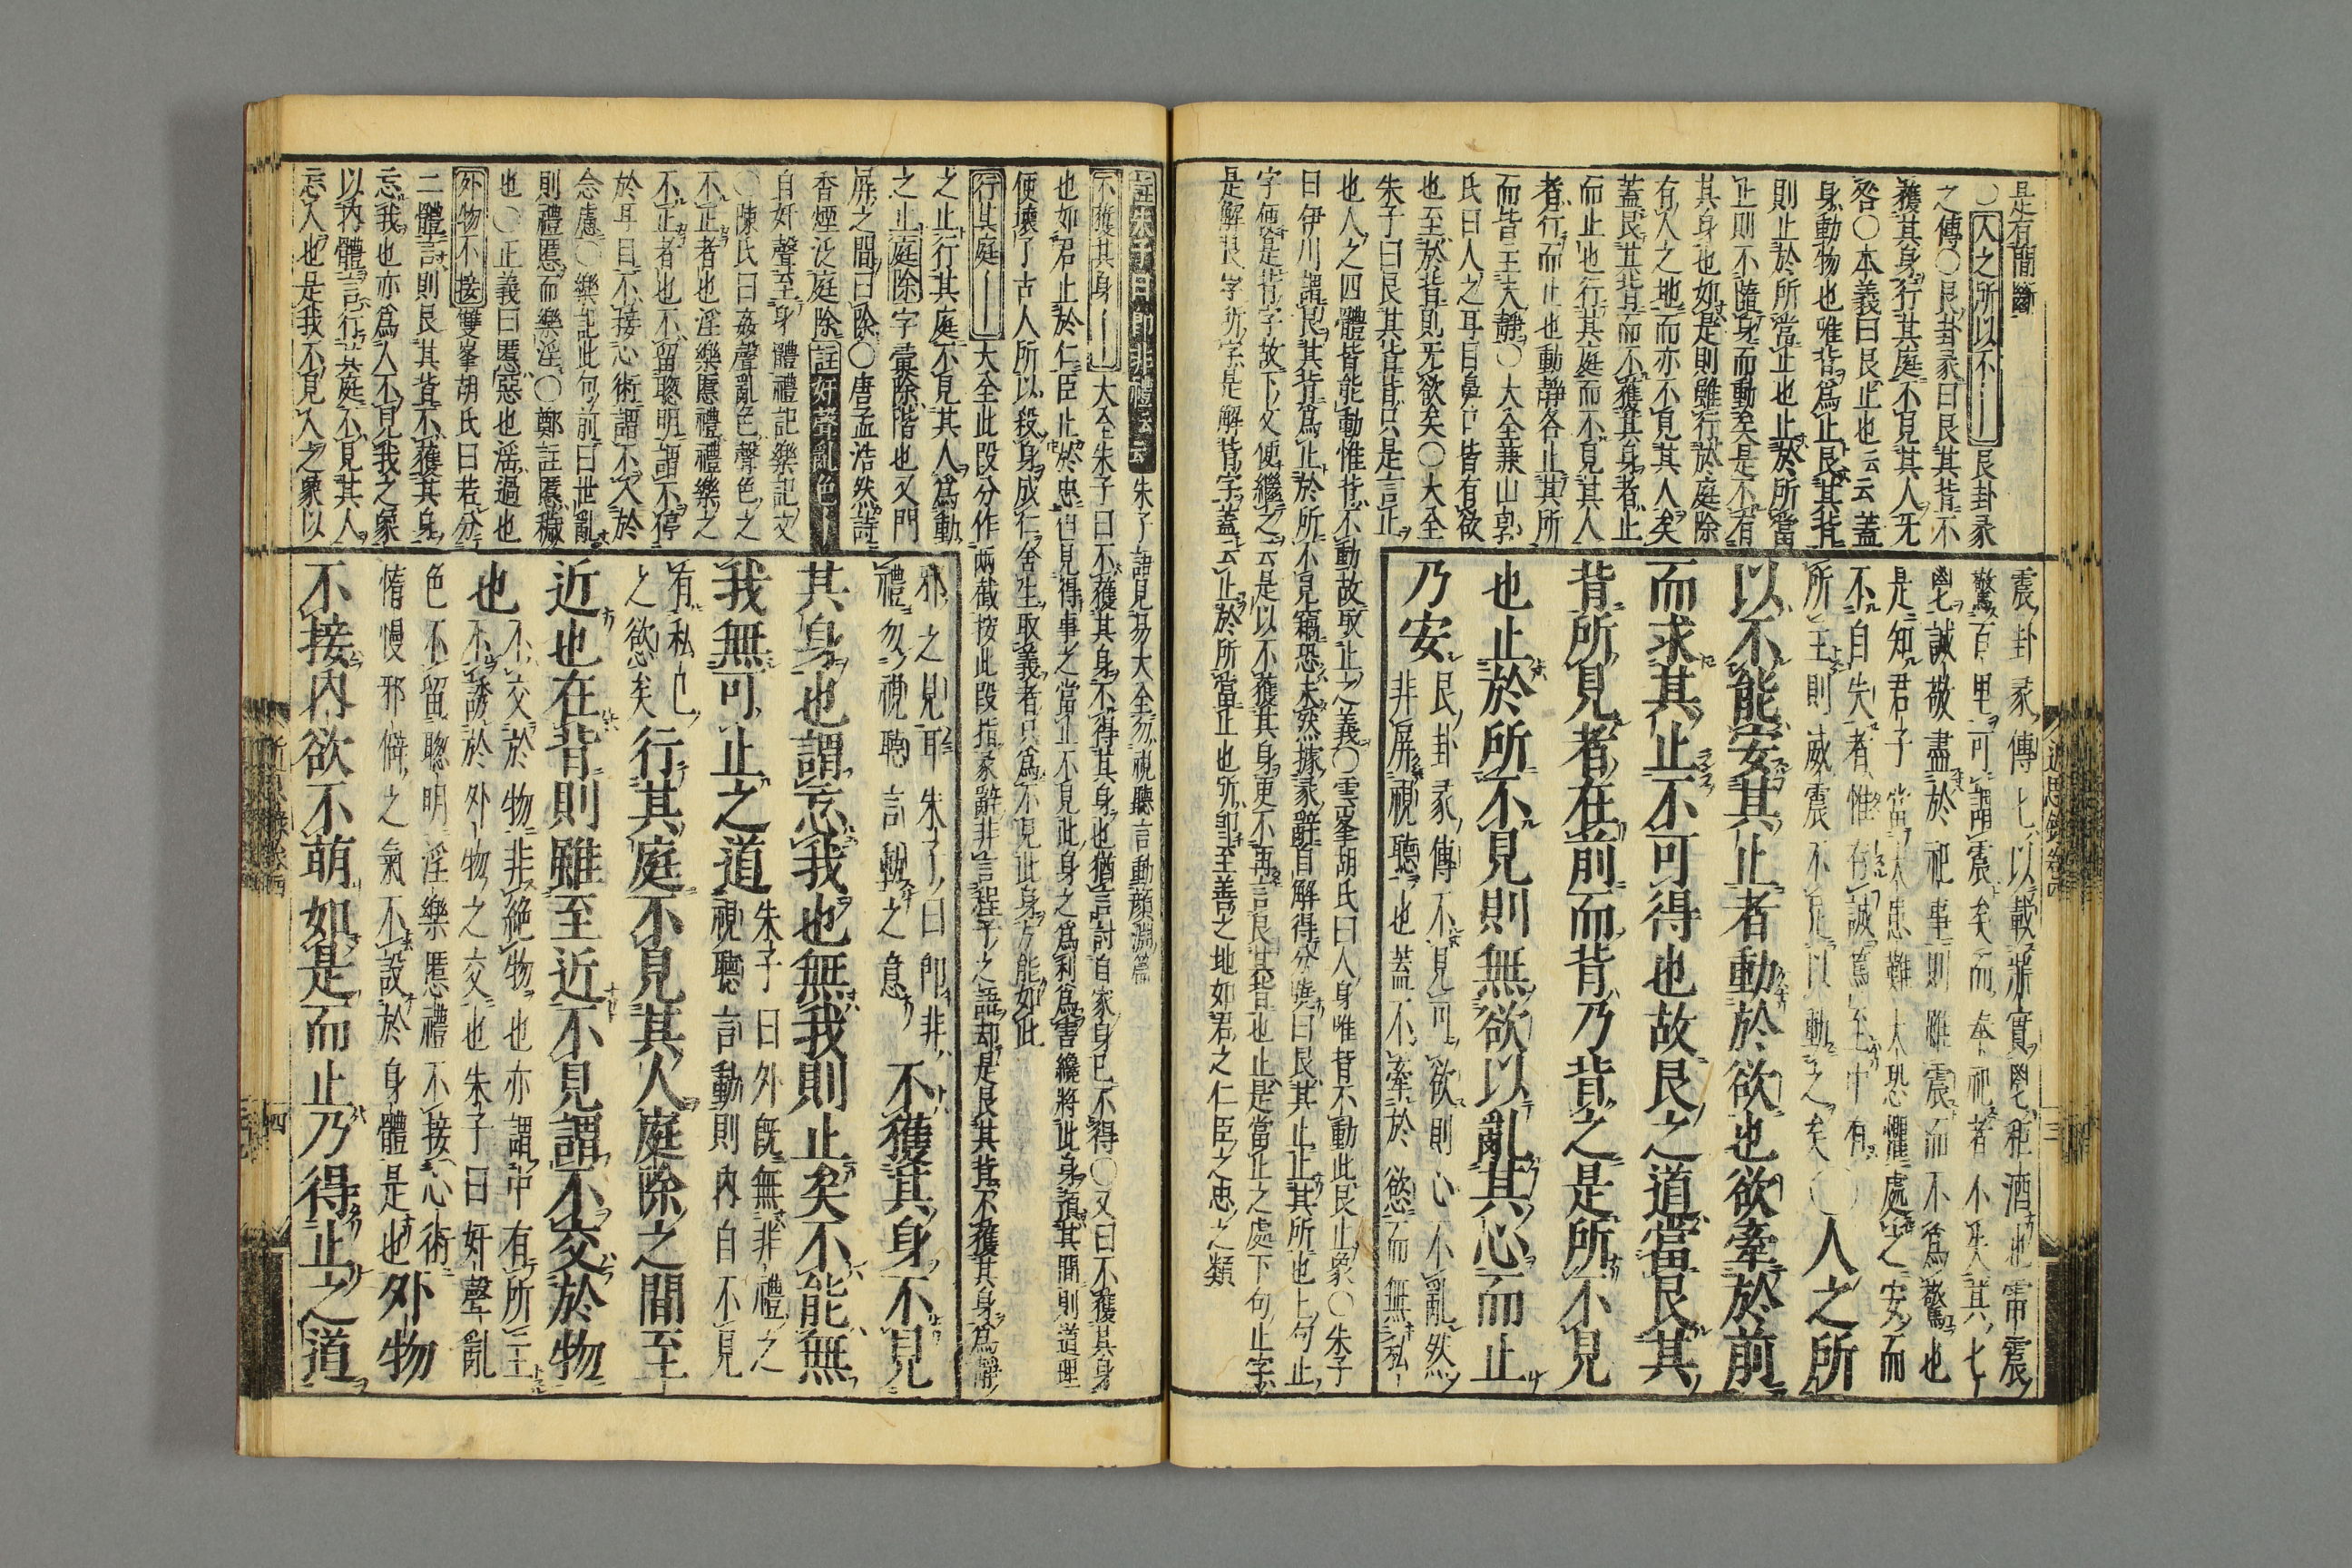 是有間斷
○人之所以不──艮卦彖
之傳○艮卦彖曰艮其背不
獲其身行其庭不見其人无
咎○本義曰艮止也云云蓋
身動物也唯背爲止艮其背
則止於所當止也止於所當
止則不隨身而動矣是不有
其身也如是則雖行於庭除
有人之地而亦不見其人矣
蓋艮其背而不獲其身者止
而止也行其庭而不見其人
者行而止也動靜各止其所
而皆主夫靜○大全兼山郭
氏曰人之耳目鼻口皆有欲
也至於背則无欲矣○大全
朱子曰艮其背背只是言止
也人之四體皆能動惟背不動故取止之義○雲峯胡氏曰人身唯背不動此艮止象○朱子
曰伊川謂艮其背爲止於所不見竊恐未然據彖辭自解得分曉曰艮其止止其所也上句止
字便是背字故下文便繼之云是以不獲其身更不再言艮其背也止是當止之處下句止字
是解艮字所字是解背字蓋云止於所當止也所即至善之地如君之仁臣之忠之類
震卦彖傳七以載鼎實鬯秬酒也雷震
驚百里可謂震矣而奉祀者不失其七
鬯誠敬盡於祀事則雖震而不爲驚也
是知君子當大患難大恐懼處之安而
不自失者惟有誠爲至中有
所主則威震不足以動之矣○人之所
以不能安其止者動於欲也欲牽於前
而求其止不可得也故艮之道當艮其
背所見者在前而背乃背之是所不見
也止於所不見則無欲以亂其心而止
乃安
艮卦彖傳不見可欲則心不亂然
非屏視聽也蓋不牽於慾而無私
近思錄卷四
三
註朱子曰即非禮云云朱子語見易大全勿視聽言動顏淵篇
不獲其身──大全朱子曰不獲其身不得其身也猶言討自家身已不得○又曰不獲其身
也如君止於仁臣止於忠但見得事之當止不見此身之爲利爲害纔將此身預其間則道理
便壞了古人所以殺身成仁舍生取義者只爲不見此身方能如此
行其庭──大全此段分作兩截按此段指彖辭非言程子之語却是艮其背不獲其身爲靜
之止行其庭不見其人爲動
之止庭除字彙除階也又門
屏之間曰除○唐孟浩然詩
香煙泛庭除註奸聲亂色─
自奸聲至身體禮記樂記文
○陳氏曰姦聲亂色聲色之
不正者也淫樂慝禮禮樂之
不正者也不留聰明謂不停
於耳目不接心術謂不入於
念慮○樂記此句前曰世亂
則禮慝而樂淫○鄭註慝穢
也○正義曰慝惡也淫過也
外物不接雙峯胡氏曰若分
二體言則艮其背不獲其身
忘我也亦爲人不見我之象
以內體言行其庭不見其人
忘人也是我不見人之象以
邪之見耳朱子曰即非
禮勿視聽言動之意
不獲其身不見
其身也謂忘我也無我則止矣不能無
我無可止之道
朱子曰外既無非禮之
視聽言動則內自不見
有私己
之慾矣
行其庭不見其人庭除之間至
近也在背則雖至近不見謂不交於物
也
不交於物非絶物也亦謂中有所主
不誘於外物之交也朱子曰奸聲亂
色不留聰明淫樂慝禮不接心術
惰慢邪僻之氣不設於身體是也
外物
不接內欲不萌如是而止乃得止之道
四